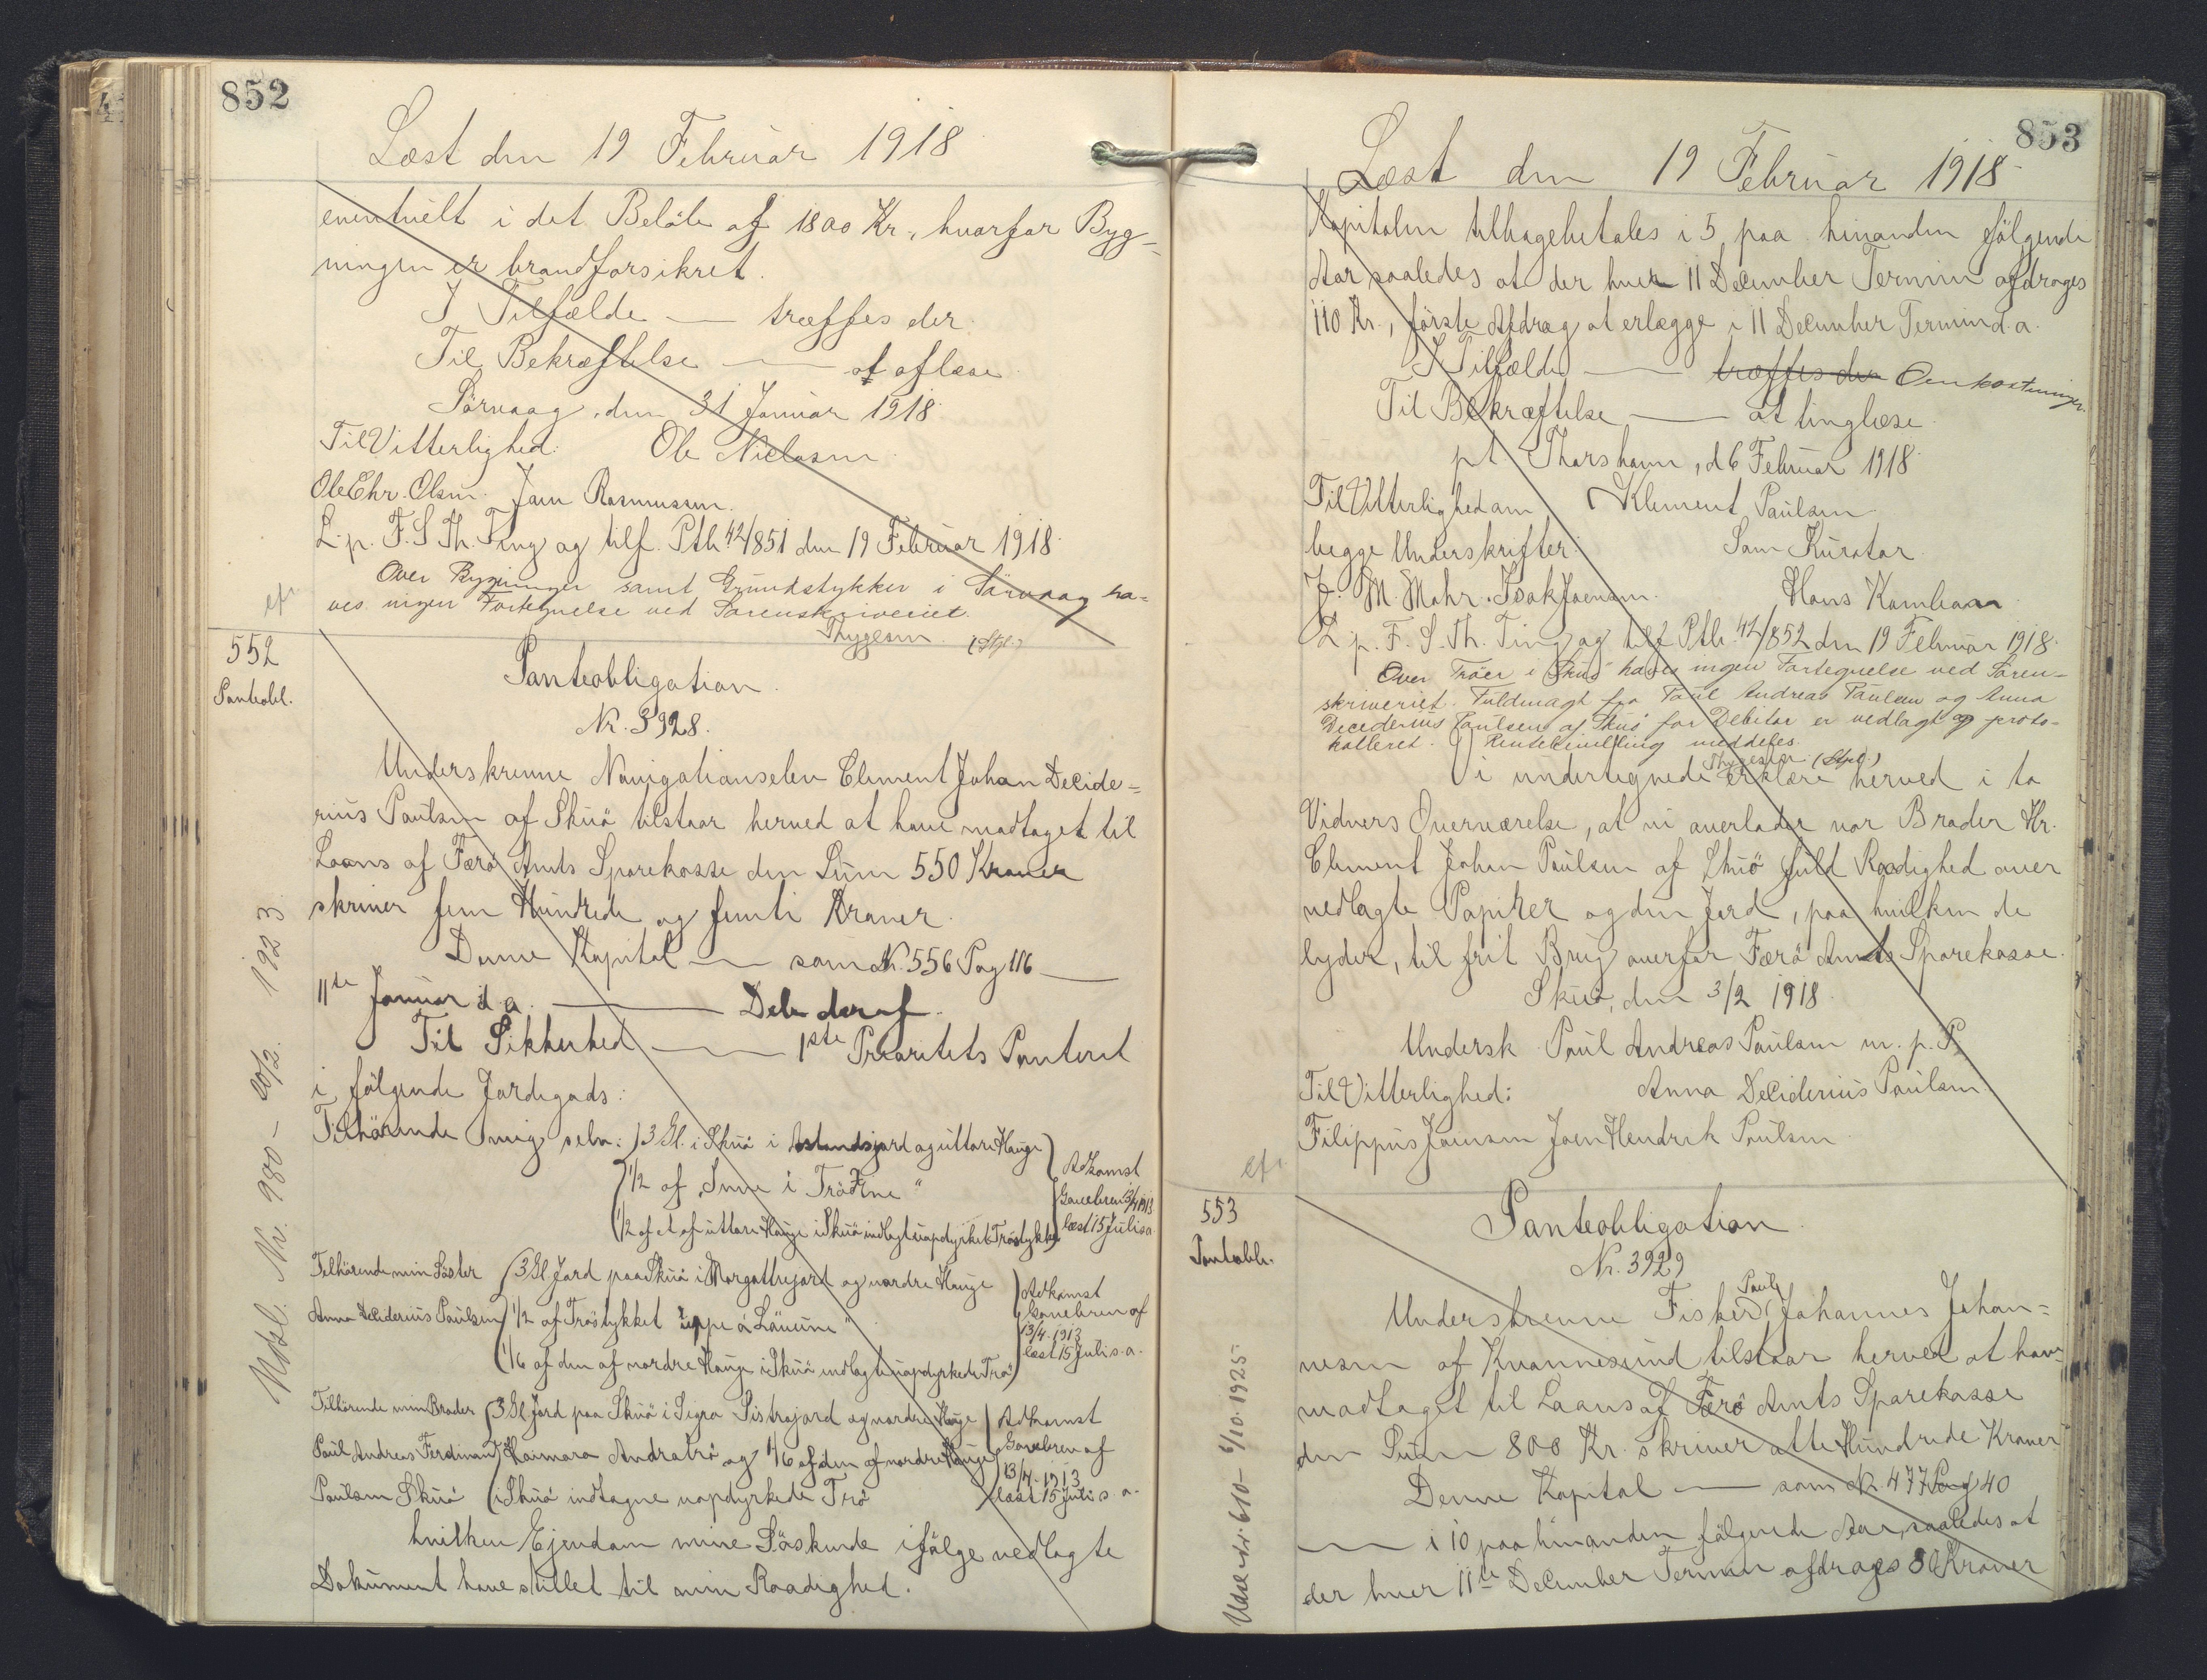 852
Læst den 19 Februar 1918
eventuelt i det Beløb af 1800 Kr., hvorfor Byg=
ningen er brandforsikret.
I Tilfælde — træffes der
Til Bekræftelse — at aflæse
Sörvaag, den 31 Januar 1918
Til Vitterlighed: Ole Niclasen
Ole Chr. Olsen. Joen Rasmussen.
L. p. F. S. Th. Ting og tilf. Ptb. 42/851 den 19 Februar 1918
Over Bygninger samt Grundstykker i Sörvaag ha=
ves ingen Fortegnelse ved Sorenskriveriet.
Thygesen (Stpl.)
552
Panteobl.
Panteobligation.
Nr. 3928.
Underskrevne Navigationselev Clement Johan Decide=
rius Paulsen af Skuö tilstaar herved at have modtaget til
Laans af Færö Amts Sparekasse den Sum 550 Kroner
skriver fem Hundrede og femti Kroner.
Denne Kapital — som Nr. 556 Pag 116 —
11te Januar d a. — Dele deraf.
Til Sikkerhed — 1ste Prioritets Panteret
i følgende Jordegods:
Tilhörende mig selv: 3 Gl. i Skuö i Astandsjord og uttari Hauge
1/2 af "Inne i Tröðine"
1/2 af et af uttari Hauge i Skuö indlagt uopdyrket Tröstykke
Adkomst
Gavebrev 13/4 1913
læst 15 Juli s a
Tilhörende min Söster
Anna Deciderius Paulsen
3 Gl Jord paa Skuö i Morgattrejord og nordre Hauge
1/2 af Tröstykket "uppe á Läuune"
1/6 af den af nordre Hauge i Skuö indlagte uopdyrkede Trö
Adkomst
Gavebrev af
13/4 1913
læst 15 Juli s. a.
Tilhörende min Broder
Poul Andreas Ferdinand
Paulsen Skuö
3 Gl Jord paa Skuö i Sigra Sistrajord og nordre Hauge
Haimara Andratrö og 1/6 af den af nordre Hauge
i Skuö indtagne uopdyrkede Trö
Adkomst
Gavebrev af
13/4 1913
læst 15 Juli s. a.
hvilken Ejendom mine Söskende ifølge vedlagte
Dokument have stillet til min Raadighed.
Udsl. Nr. 980 — 20/2. 1923
853
Læst den 19 Februar 1918
Kapitalen tilbagebetales i 5 paa hinanden følgende
Aar saaledes at der hver 11 December Termin afdrages
110 Kr., første Afdrag at erlægge i 11 December Termin d. a.
I Tilfælde — træffes der Omkostninger
Til Bekræftelse — at tinglæse
pt. Thorshavn, d 6 Februar 1918
Til Vitterlighed om Klement Paulsen
begge Underskrifter. Som Kurator
J. M. Mohr. Isak Joensen. Hans Kamban
L. p. F. S. Th. Ting og tilf Ptb. 42/852 den 19 Februar 1918
Over Tröer i Skuö haves ingen Fortegnelse ved Soren=
skriveriet. Fuldmagt fra Poul Andreas Paulsen og Anna
Deciderius Paulsen af Skuö for Debitor er vedlagt og proto=
kolleret. Rentebevilling meddeles.
Thygesen (Stpl.)
Vi undertegnede erklære herved i to
Vidners Overværelse, at vi overlader vor Broder Hr.
Clement Johan Paulsen af Skuö fuld Raadighed over
vedlagte Papirer og den Jord, paa hvilken de
lyder, til frit Brug overfor Færö Amts Sparekasse.
Skuö, den 3/2 1918
Undersk Poul Andreas Paulsen m. p. P.
Til Vitterlighed: Anna Deciderius Paulsen
Filippus Joensen Joen Hendrik Poulsen
553
Panteobl.
Panteobligation.
Nr. 3929
Underskrevne Fisker Pauli Johannes Johan=
nesen af Kvannesund tilstaar herved at have
modtaget til Laans af Færö Amts Sparekasse
den Sum 800 Kr. skriver otte Hundrede Kroner
Denne Kapital — som Nr. 477 Pag 40
— i 10 paa hinanden følgende Aar, saaledes at
der hver 11te December Termin afdrages 80 Kroner
Udsl. Nr. 610 — 6/10. 1925.